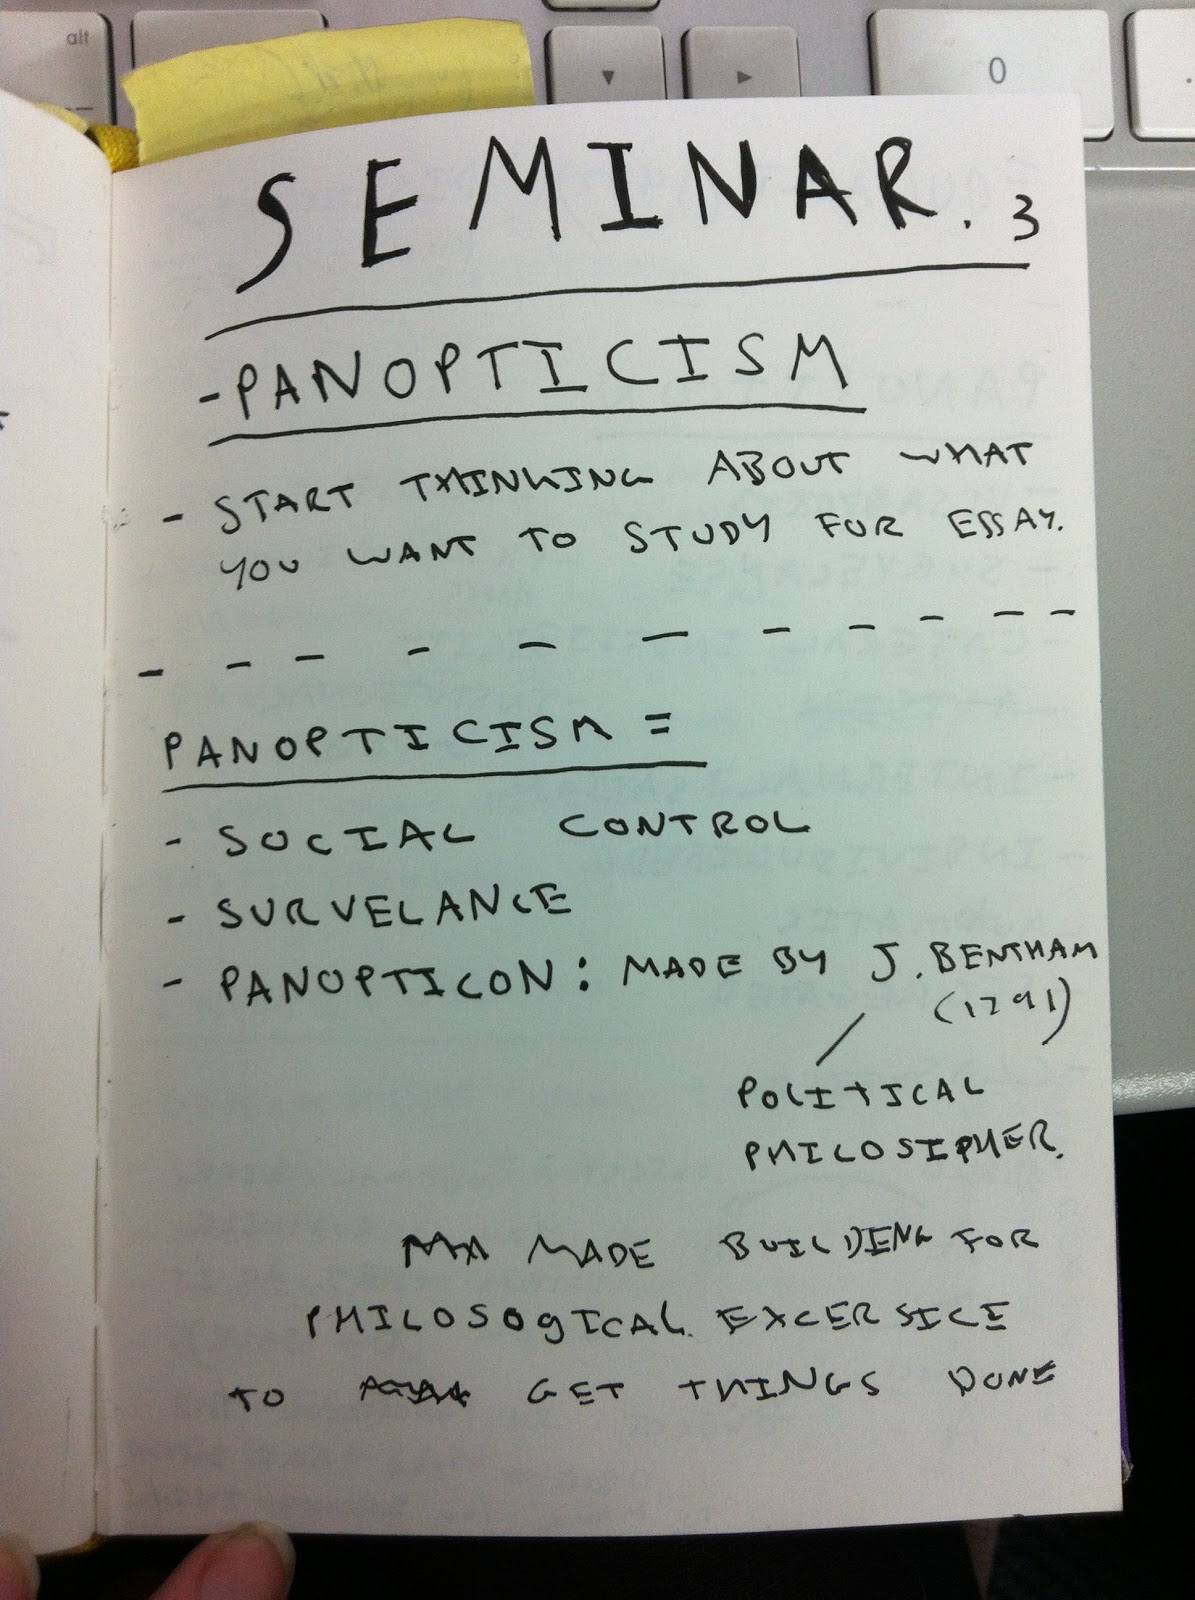 alt
0
SEMINAR. 3
- PANOPTICISM
- START THINKING ABOUT WHAT
YOU WANT TO STUDY FOR ESSAY.
PANOPTICISM =
- SOCIAL CONTROL
- SURVELANCE
- PANOPTICON: MADE BY J. BENTHAM
(1791)
POLITICAL
PHILOSIPHER.
MADE BUILDING FOR
PHILOSOGICAL EXCERSICE
TO GET THINGS DONE